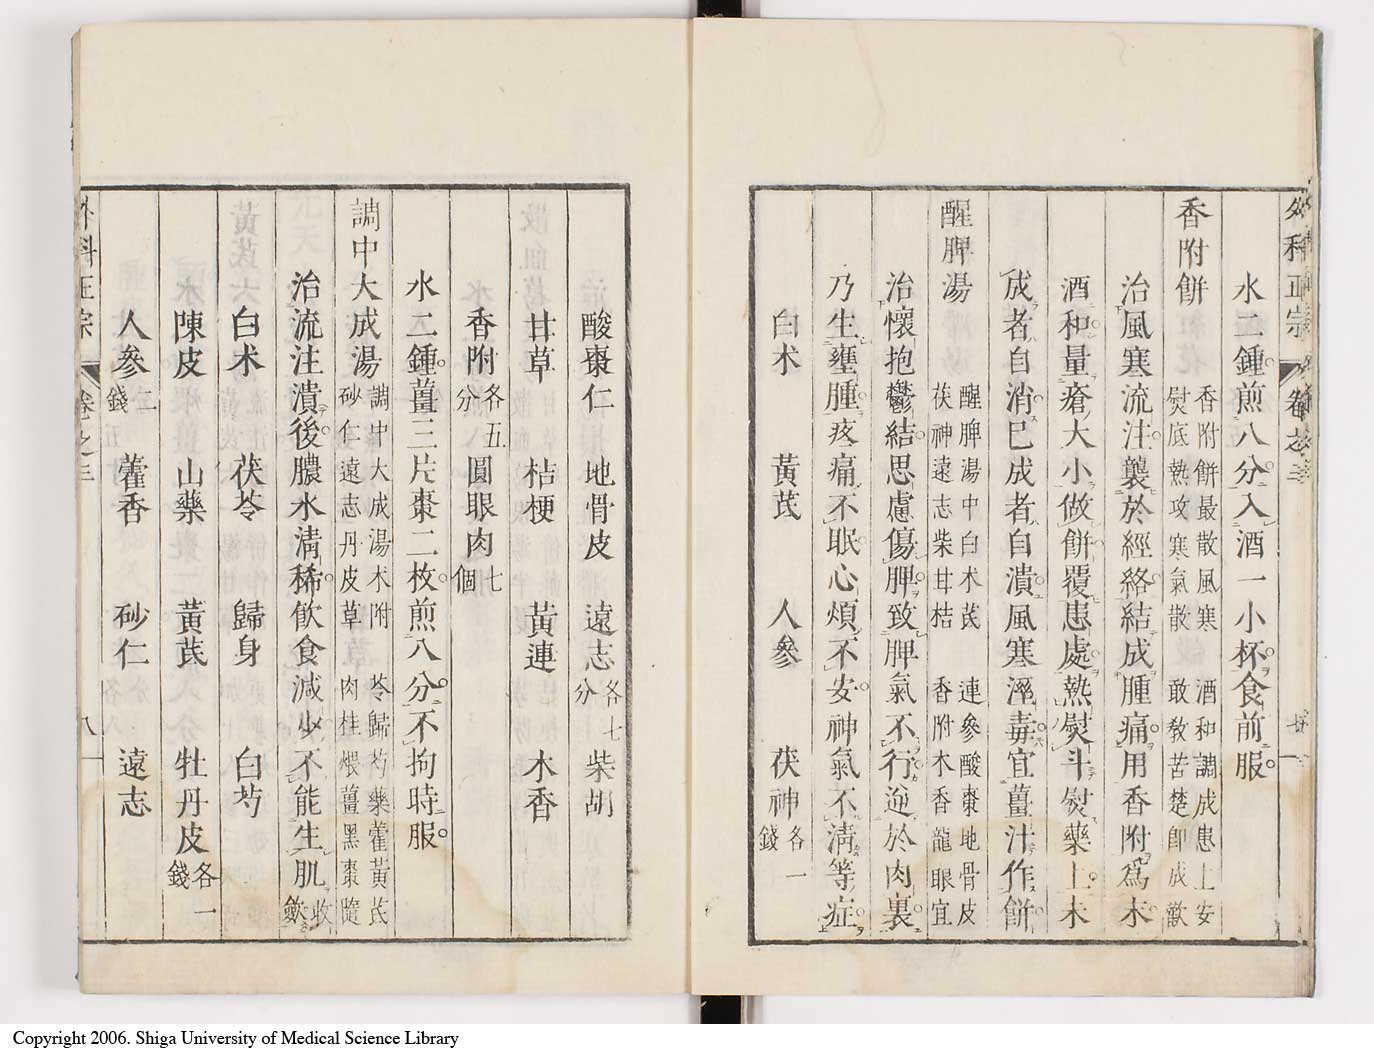 外科正宗 卷之三 廿一
水二鍾煎八分入酒一小杯食前服
香附餅 香附餅最散風寒 酒和調成患上安
熨底熱攻寒氣散 敢敎苦楚卽成歡
治風寒流注襲於經絡結成腫痛用香附爲末
酒和量瘡大小做餅覆患處熱熨斗熨藥上未
成者自消巳成者自潰風寒溼毒宜薑汁作餅
醒脾湯 醒脾湯中白朮芪 連參酸棗地骨皮
茯神遠志柴甘桔 香附木香龍眼宜
治懷抱鬱結思慮傷脾致脾氣不行逆於肉裏
乃生壅腫疼痛不眠心煩不安神氣不淸等症
白朮 黃芪 人參 茯神各一錢
酸棗仁 地骨皮 遠志各七分 柴胡
甘草 桔梗 黃連 木香
香附各五分 圓眼肉七個
水二鍾薑三片棗二枚煎八分不拘時服
調中大成湯 調中大成湯朮附 苓歸芍藥藿黃芪
砂仁遠志丹皮草 肉桂煨薑黑棗隨
治流注潰後膿水淸稀飮食減少不能生肌收歛
白朮 茯苓 歸身 白芍
陳皮 山藥 黃芪 牡丹皮各一錢
人參二錢 藿香 砂仁 遠志
外科正宗 卷之三
Copyright 2006. Shiga University of Medical Science Library